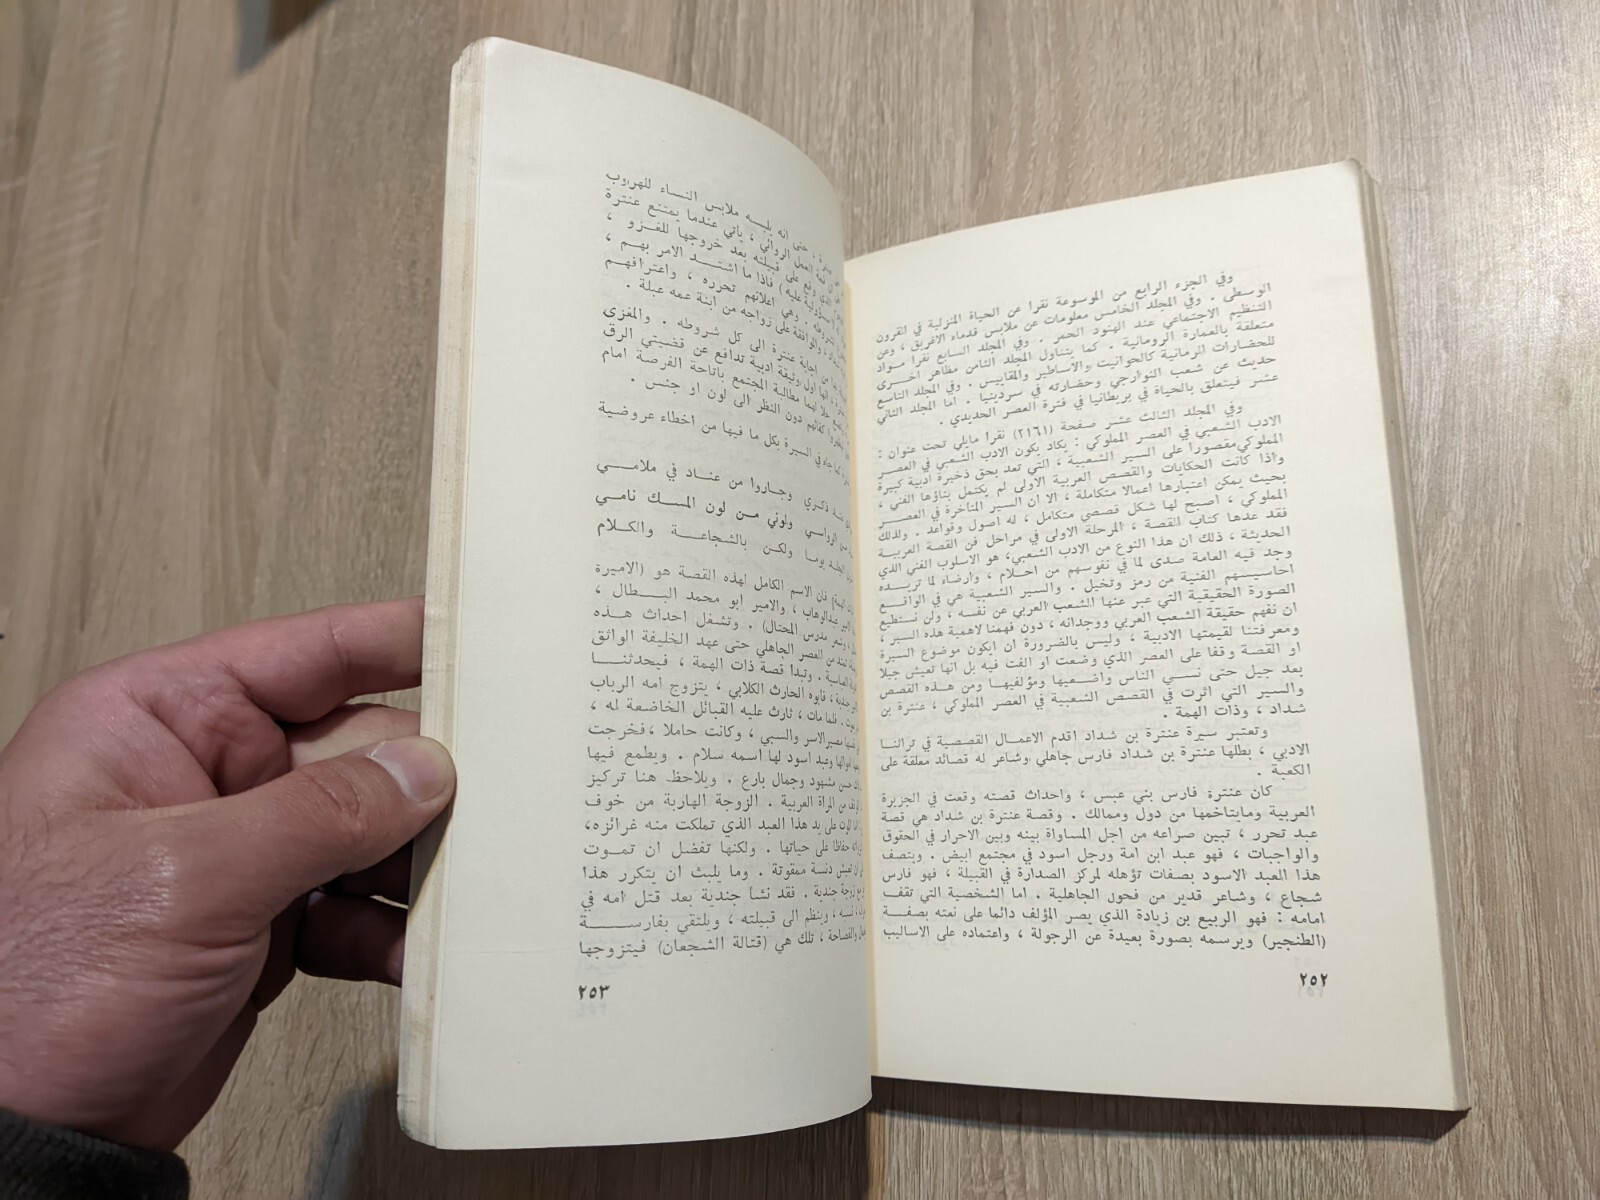 وفي الجزء الرابع من الموسوعة نقرا عن الحياة المنزلية في القرون
الوسطى . وفي المجلد الخامس معلومات عن ملابس قدماء الاغريق ، وعن
التنظيم الاجتماعي عند الهنود الحمر . وفي المجلد السابع نقرا مواد
متعلقة بالعمارة الرومانية . كما يتناول المجلد الثامن مظاهر اخرى
للحضارات الرمانية كالحوانيت والأساطير والمقاييس . وفي المجلد التاسع
حديث عن شعب النوارجي وحضارته في سردينيا . اما المجلد الثاني
عشر فيتعلق بالحياة في بريطانيا في فترة العصر الحديدي .
وفي المجلد الثالث عشر صفحة (٢١٦١) نقرا مايلي تحت عنوان :
الادب الشعبي في العصر المملوكي : يكاد يكون الادب الشعبي في العصر
المملوكي مقصورا على السير الشعبية ، التي تعد بحق ذخيرة ادبية كبيرة
واذا كانت الحكايات والقصص العربية الاولى لم يكتمل بناؤها الفني ،
بحيث يمكن اعتبارها اعمالا متكاملة ، الا ان السير المتاخرة في العصر
المملوكي ، اصبح لها شكل قصصي متكامل ، له اصول وقواعد . ولذلك
فقد عدها كتاب القصة ، المرحلة الاولى في مراحل فن القصة العربية
الحديثة ، ذلك ان هذا النوع من الادب الشعبي، هو الاسلوب الفني الذي
وجد فيه العامة صدى لما في نفوسهم من احلام ، وارضاء لما تريده
احاسيسهم الفنية من رمز وتخيل . والسير الشعبية هي في الواقع
الصورة الحقيقية التي عبر عنها الشعب العربي عن نفسه ، ولن نستطيع
ان نفهم حقيقة الشعب العربي ووجدانه ، دون فهمنا لاهمية هذه السير ،
ومعرفتنا لقيمتها الادبية ، وليس بالضرورة ان ايكون موضوع السيرة
او القصة وقفا على العصر الذي وضعت او الفت فيه بل انها تعيش جيلا
بعد جيل حتى نسي الناس واضعيها ومؤلفيها ومن هذه القصص
والسير التي اثرت في القصص الشعبية في العصر المملوكي ، عنترة بن
شداد ، وذات الهمة .
وتعتبر سيرة عنترة بن شداد اقدم الاعمال القصصية في تراثنا
الادبي ، بطلها عنترة بن شداد فارس جاهلي وشاعر له قصائد معلقة على
الكعبة .
كان عنترة فارس بني عبس ، واحداث قصته وقعت في الجزيرة
العربية ومايتاخمها من دول وممالك . وقصة عنترة بن شداد هي قصة
عبد تحرر ، تبين صراعه من اجل المساواة بينه وبين الاحرار في الحقوق
والواجبات ، فهو عبد ابن امة ورجل اسود في مجتمع ابيض . ويتصف
هذا العبد الاسود بصفات تؤهله لمركز الصدارة في القبيلة ، فهو فارس
شجاع ، وشاعر قدير من فحول الجاهلية . اما الشخصية التي تقف
امامه : فهو الربيع بن زيادة الذي يصر المؤلف دائما على نعته بصفة
(الطنجير) ويرسمه بصورة بعيدة عن الرجولة ، واعتماده على الاساليب
٢٥٢
حتى انه يلبسه ملابس النساء للهروب
العمل الروائي ، ياتي عندما يمتنع عنترة
على قبيلته بعد خروجها للغزو ،
فاذا ما اشتد الامر بهم ،
وهي اعلانهم تحرره ، واعترافهم
والموافقة على زواجه من ابنة عمه عبلة .
من اجابة عنترة الى كل شروطه . والمغزى
انها اول وثيقة ادبية تدافع عن قضيتي الرق
مطالبة المجتمع باتاحة الفرصة امام
كفائهم دون النظر الى لون او جنس .
كما جاء في السيرة بكل ما فيها من اخطاء عروضية
ذكري وجاروا من عناد في ملامي
الرواسي ولوني من لون المسك نامي
يوما ولكن بالشجاعة والكلام
فان الاسم الكامل لهذه القصة هو (الاميرة
عبدالوهاب ، والامير ابو محمد البطال ،
مدرس المحتال) . وتشغل احداث هذه
من العصر الجاهلي حتى عهد الخليفة الواثق
العباسية . وتبدا قصة ذات الهمة ، فيحدثنا
جندبة ، فابوه الحارث الكلابي ، يتزوج امه الرباب
فلما مات ، ثارت عليه القبائل الخاضعة له ،
مصير الاسر والسبي ، وكانت حاملا ، فخرجت
وعبد اسود لها اسمه سلام . ويطمع فيها
حسن مشهود وجمال بارع . ويلاحظ هنا تركيز
من المراة العربية . الزوجة الهاربة من خوف
الموت على يد هذا العبد الذي تملكت منه غرائزه،
حفاظا على حياتها . ولكنها تفضل ان تموت
ان تعيش دنسة ممقوتة . وما يلبث ان يتكرر هذا
زوجة جندبة . فقد نشأ جندبة بعد قتل امه في
وينظم الى قبيلته ، ويلتقي بفارسة
والفصاحة ، تلك هي (قتالة الشجعان) فيتزوجها
٢٥٣